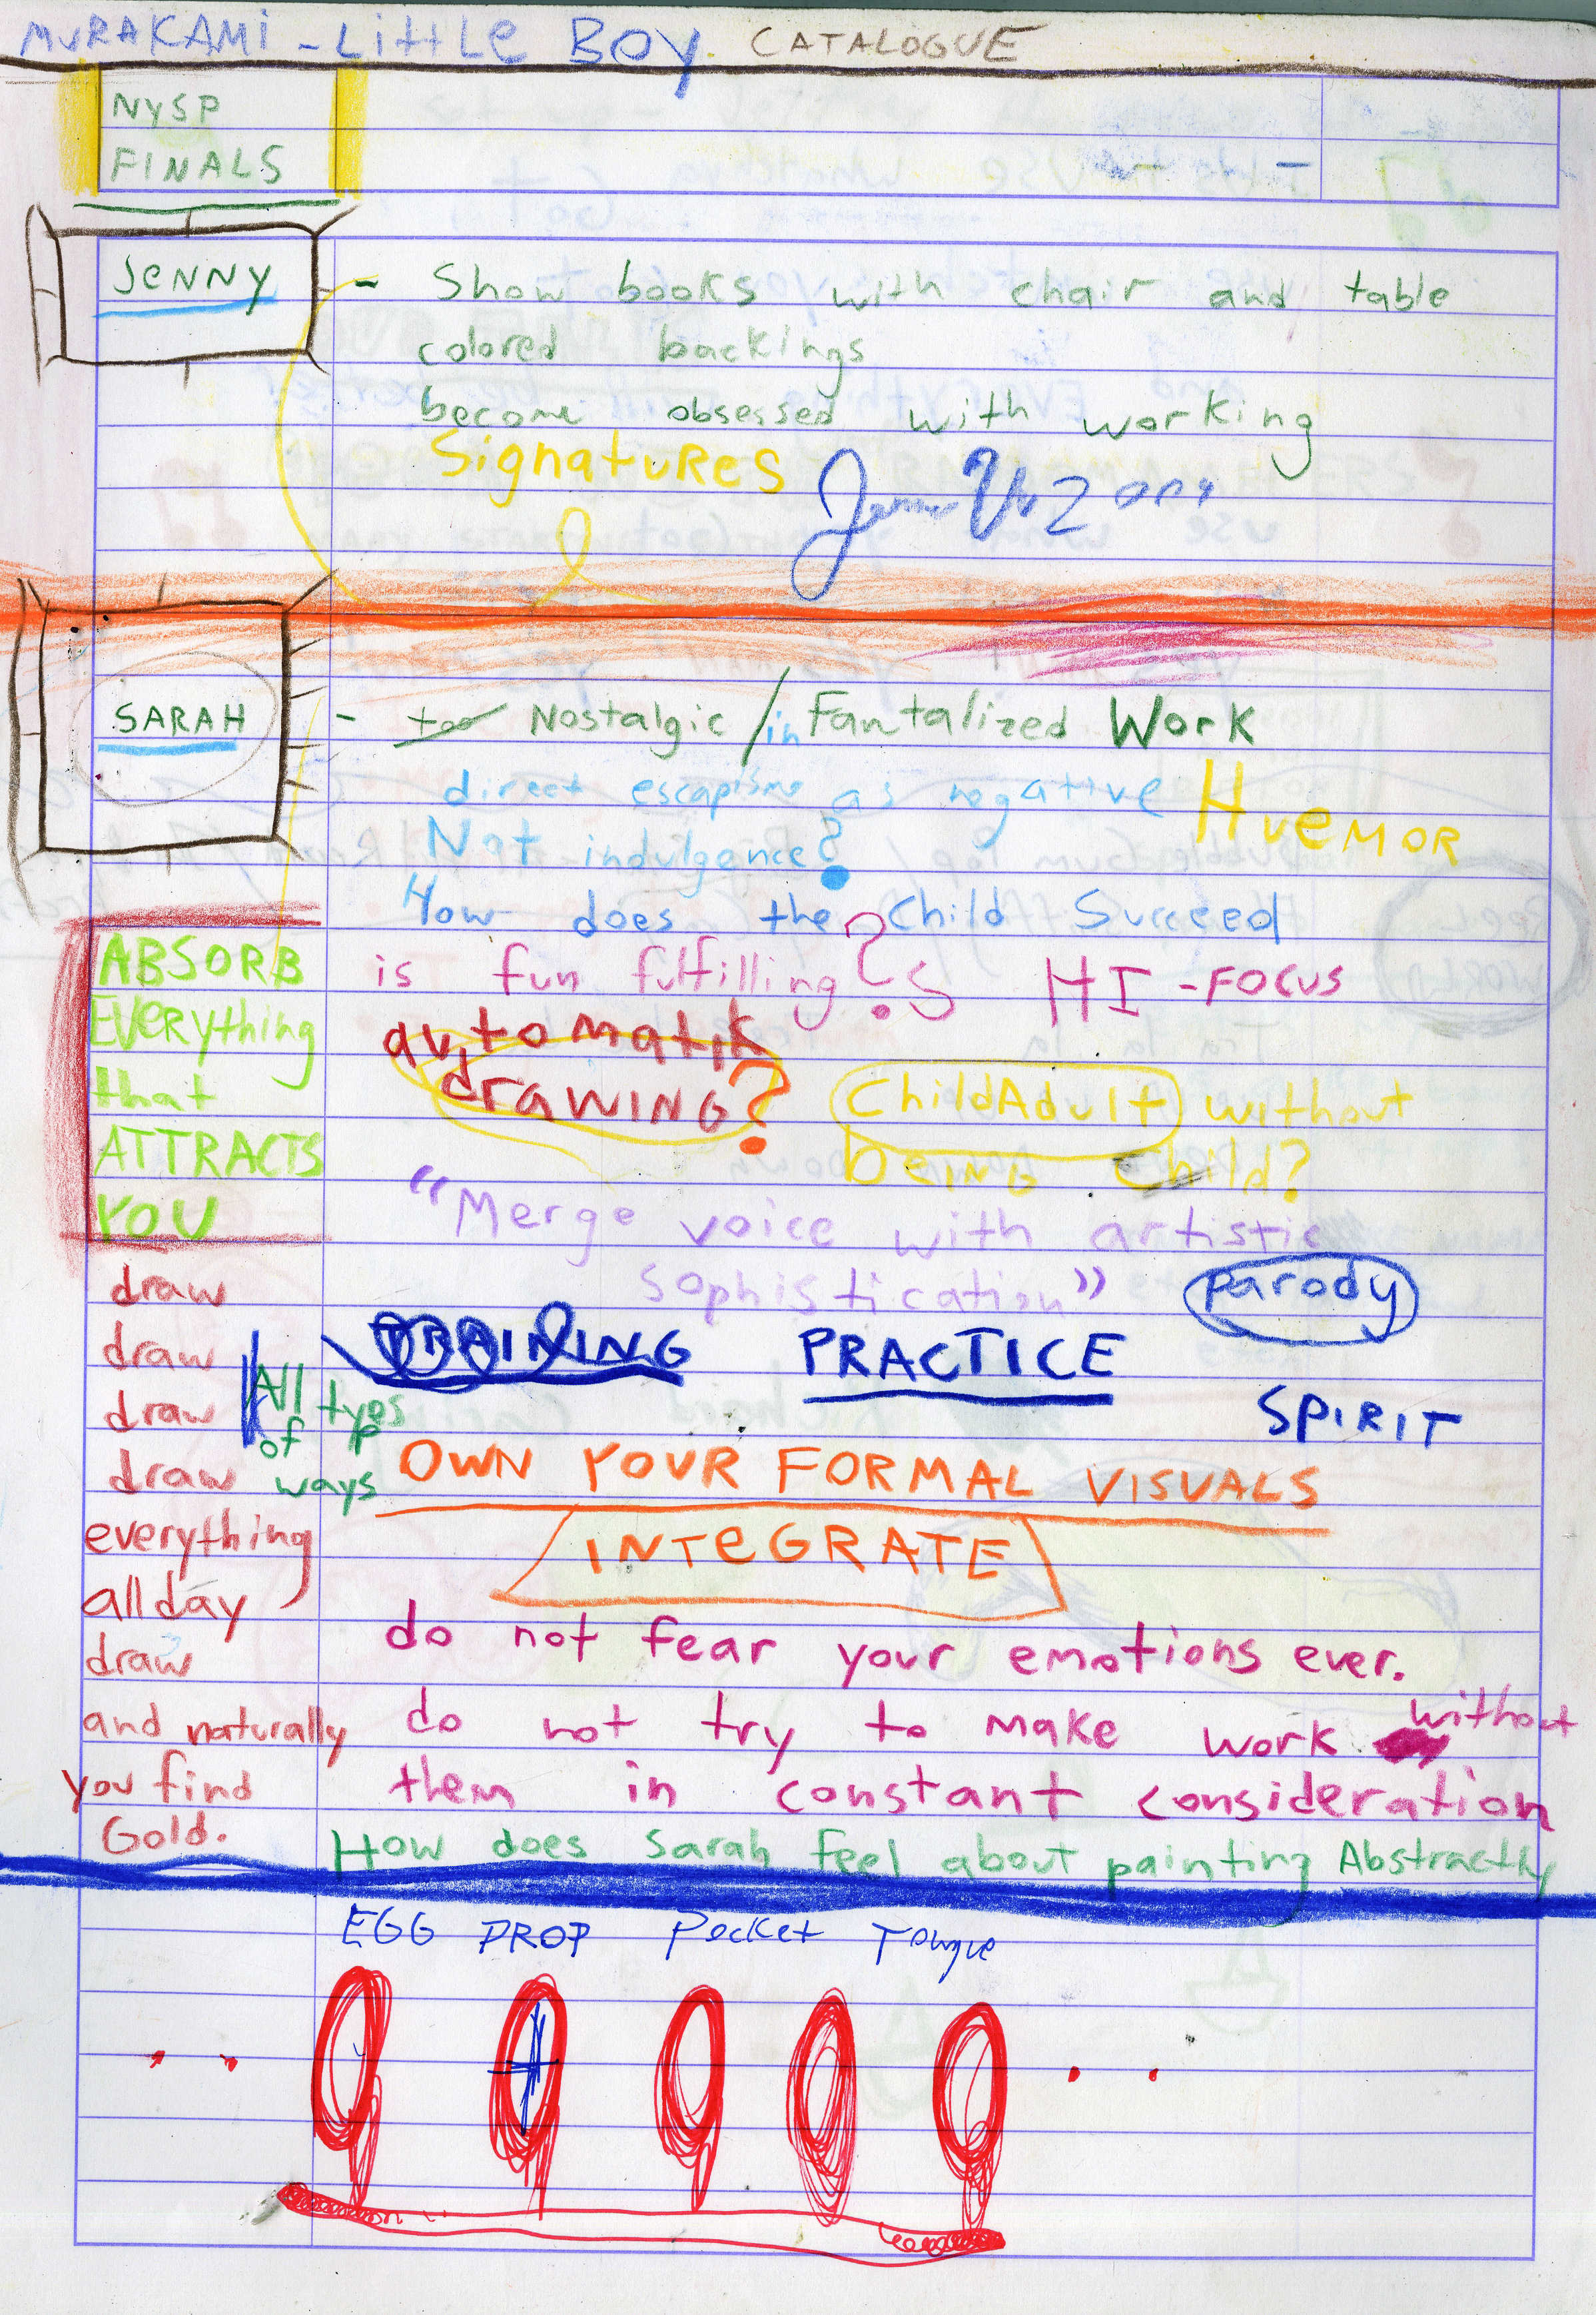 MURAKAMI - Little Boy. CATALOGUE
NYSP
FINALS
JENNY
- Show books with chair and table
colored backings
become obsessed with working
SignatuRes
SARAH
- too Nostalgic / in Fantalized Work
direct escapisme as negative
HueMOR
Not indulgence?
How does the Child Succeed
is fun fulfilling? S HI-FOCUS
automatik
drawing?
ChildAdult without
being child?
"Merge voice with artistic
Sophistication"
parody
TRAINING PRACTICE
SPIRIT
OWN YOUR FORMAL VISUALS
INTEGRATE
do not fear your emotions ever.
do not try to make work without
them in constant consideration
How does Sarah feel about painting Abstractly
ABSORB
EVERything
that
ATTRACTS
YOU
draw
draw
draw
draw
All typs
of
ways
everything
all day
draw
and naturally
you find
Gold.
EGG DROP Pocket Tongue